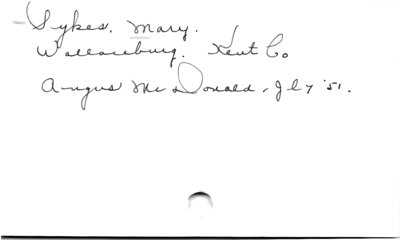 Sykes, Mary.
Wallaceburg. Kent Co
Angus McDonald, Jly '51.